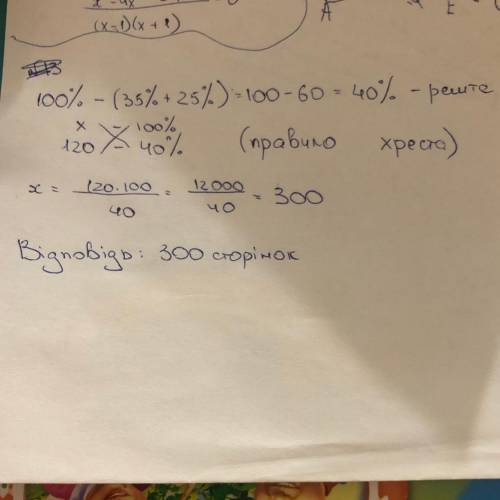 (x-1)(x+1)
A
E
100% - (35% + 25%) = 100 - 60 = 40% - решта
x - 100%
120 - 40% (правило хреста)
x = 120·100/40 = 12000/40 = 300
Відповідь: 300 сторінок